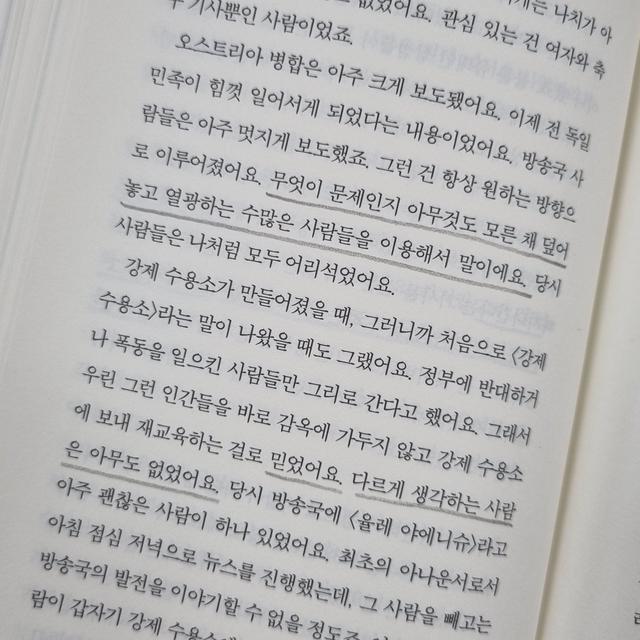 없었어요. 관심 있는 건 여자와 축
기사뿐인 사람이었죠.
오스트리아 병합은 아주 크게 보도됐어요. 이제 전 독일
민족이 힘껏 일어서게 되었다는 내용이었어요. 방송국 사
람들은 아주 멋지게 보도했죠. 그런 건 항상 원하는 방향으
로 이루어졌어요. 무엇이 문제인지 아무것도 모른 채 덮어
놓고 열광하는 수많은 사람들을 이용해서 말이에요. 당시
사람들은 나처럼 모두 어리석었어요.
강제 수용소가 만들어졌을 때, 그러니까 처음으로 〈강제
수용소〉라는 말이 나왔을 때도 그랬어요. 정부에 반대하거
나 폭동을 일으킨 사람들만 그리로 간다고 했어요. 그래서
우린 그런 인간들을 바로 감옥에 가두지 않고 강제 수용소
에 보내 재교육하는 걸로 믿었어요. 다르게 생각하는 사람
은 아무도 없었어요. 당시 방송국에 〈율레 야에니슈〉라고
아주 괜찮은 사람이 하나 있었어요. 최초의 아나운서로서
아침 점심 저녁으로 뉴스를 진행했는데, 그 사람을 빼고는
방송국의 발전을 이야기할 수 없을 정도죠.
람이 갑자기 강제